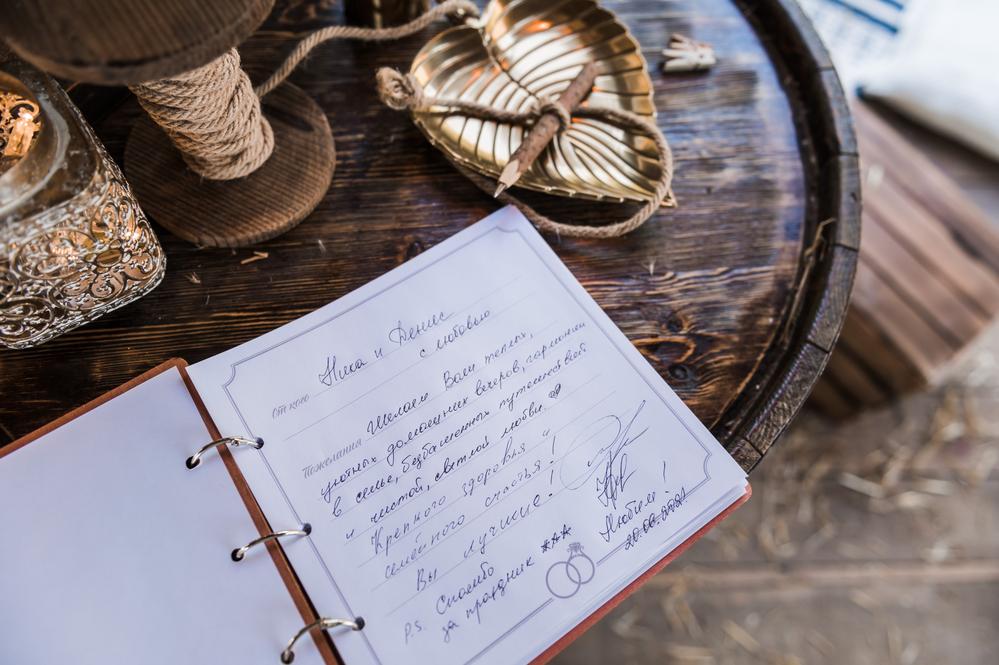 От кого Ника и Денис
с любовью
Пожелания Желаем Вам теплых,
уютных домашних вечеров, гармонии
в семье, безбашенных путешествий
и чистой, светлой любви.
Крепкого здоровья и
семейного счастья!
Вы лучшие!
Любим!
P.S. Спасибо
за праздник ***